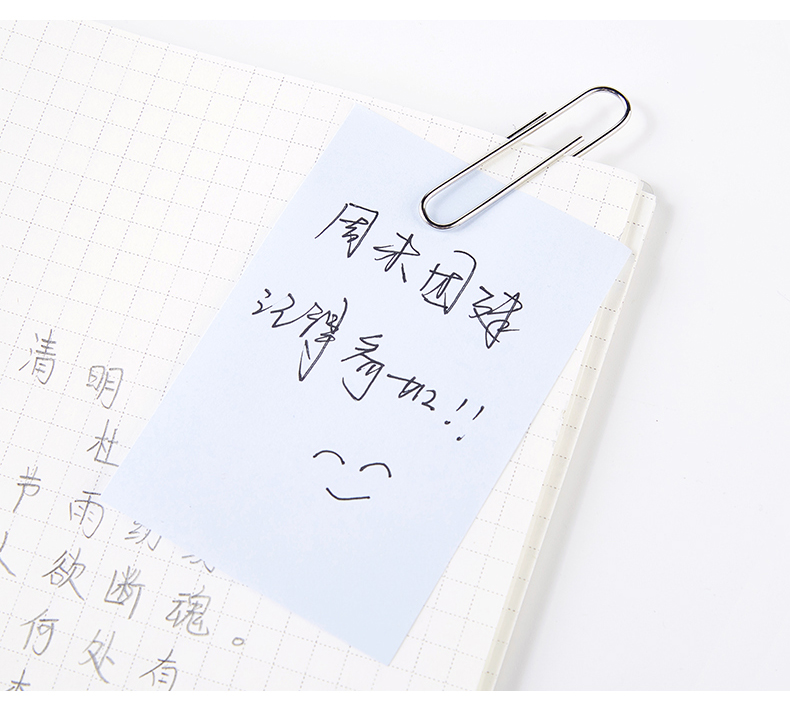 周末团建
记得参加!!
清明
杜
节雨纷纷
人欲断魂。
何处有